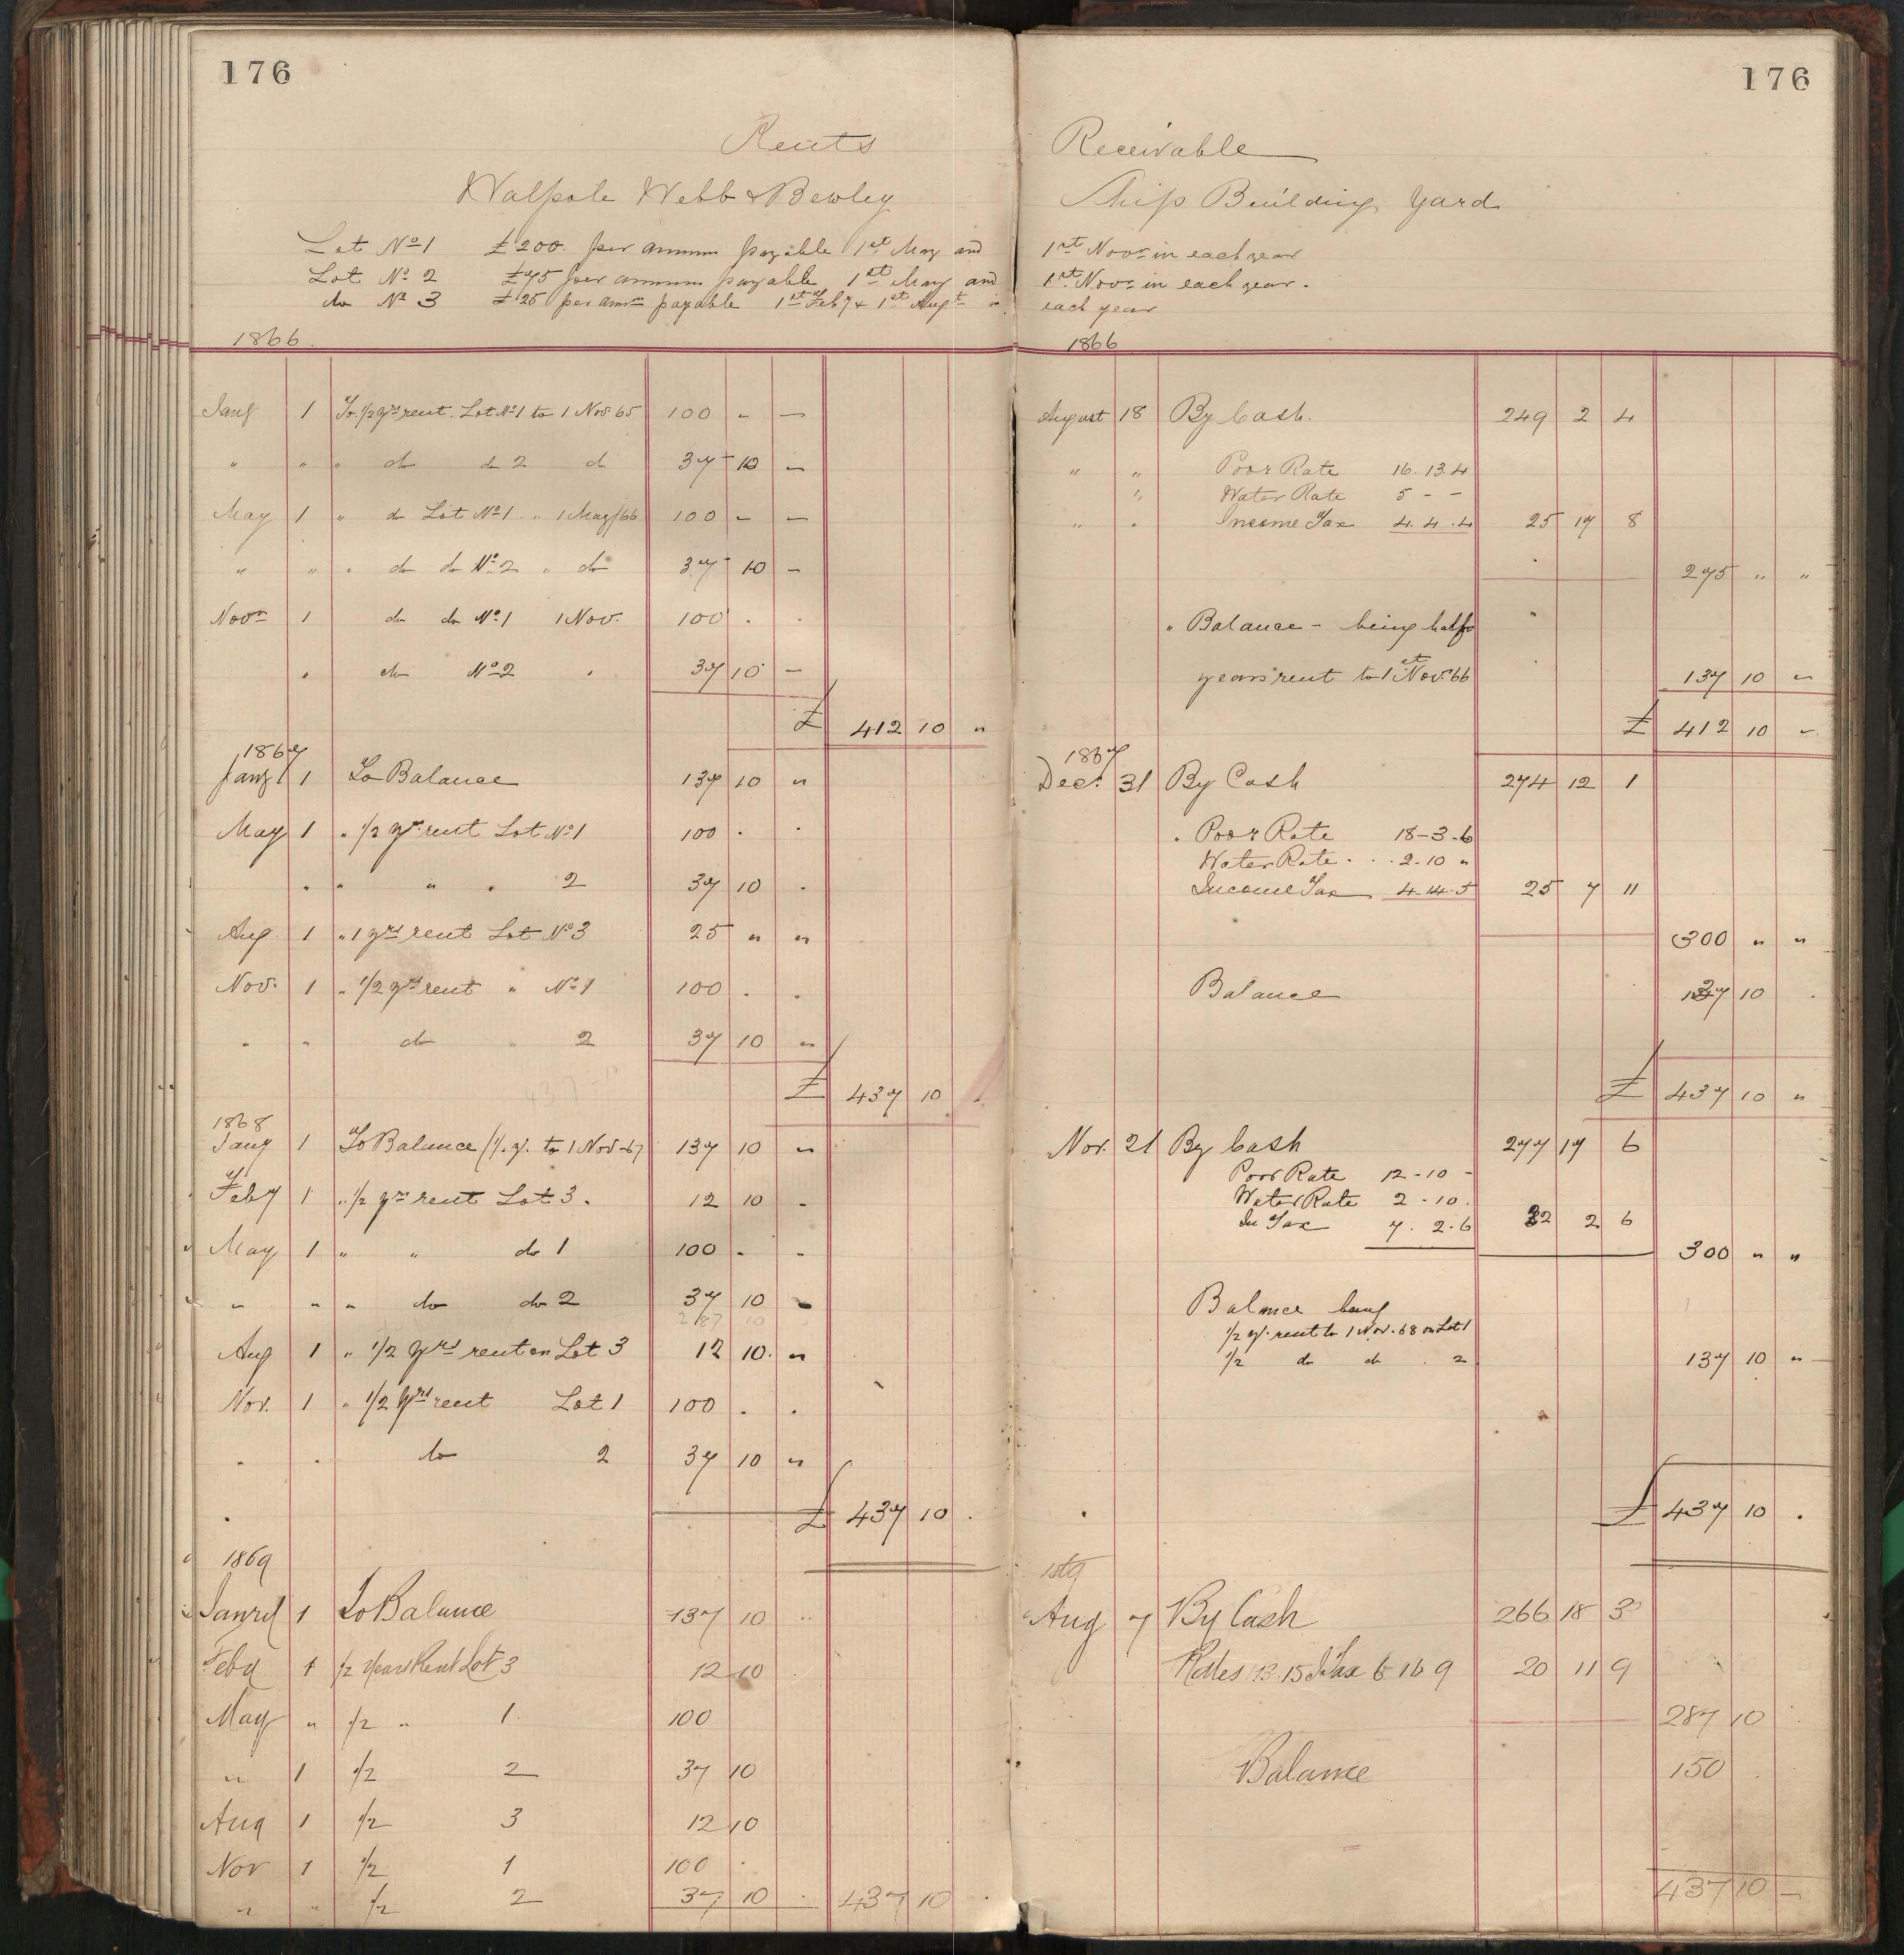 176
Rents
Walpole Webb & Bewley
Lot No 1 £200 per annum payable 1st May and
Lot No 2 £75 per annum payable 1st May and
do No 3 £25 per annm payable 1st Feby & 1st Augt in
1866
Jany 1 To 1/2 yrs rent Lot No 1 to 1 Nov. 65 100 - -
" " " do do 2 do 37 10 -
May 1 " do Lot No 1 " 1 May/66 100 - -
" " " do do No 2 " do 37 10 -
Novr 1 do do No 1 1 Nov. 100 . .
. do No 2 . 37 10 -
£ 412 10 "
1867
Jany 1 To Balance 137 10 "
May 1 " 1/2 yr rent Lot No 1 100 . .
. " " . 2 37 10 .
Aug 1 " 1 yrs rent Lot No 3 25 " "
Nov. 1 " 1/2 yrs rent " No 1 100 . .
" " do " 2 37 10 "
437-10
£ 437 10 .
1868
Jany 1 To Balance (1/2 y. to 1 Nov-67 137 10 "
Feby 1 " 1/2 yr rent Lot 3. 12 10 -
May 1 " " do 1 100 - -
" " " do do 2 37 10 -
287 10
Aug 1 " 1/2 yrs rent on Lot 3 12 10 "
Nov. 1 " 1/2 yrs rent Lot 1 100 . .
. . do 2 37 10 "
£ 437 10 .
1869
Janry 1 To Balance 137 10 "
Feby 1 1/2 years Rent Lot 3 12 10
May " 1/2 " 1 100
" 1 1/2 2 37 10
Aug 1 1/2 3 12 10
Nov 1 1/2 1 100 .
" " 1/2 2 37 10 . 437 10
176
Receivable
Ship Building Yard
1st Novr in each year
1st Novr in each year.
each year
1866
August 18 By Cash. 249 2 4
" " Poor Rate 16.13.4
" Water Rate 5 - -
" " Income Tax 4.4.4 25 17 8
275 " "
" Balance - being half
years rent to 1st Nov. 66 137 10 "
£ 412 10 "
1867
Dec. 31 By Cash 274 12 1
. Poor Rate 18-3-6
Water Rate . . . 2.10 "
Income Tax 4.14.5 25 7 11
300 " "
Balance 137 10 .
£ 437 10 "
Nov. 21 By Cash 277 17 6
Poor Rate 12-10 -
Water Rate 2.10.
In Tax 7.2.6 22 2 6
300 " "
Balance being
1/2 y. rent to 1 Nov. 68 on Lot 1
1/2 do do . 2 137 10 "
£ 437 10 .
1869
Aug 7 By Cash 266 18 3
Rates 13.15 I Tax 6 16 9 20 11 9
287 10
Balance 150
437 10 -